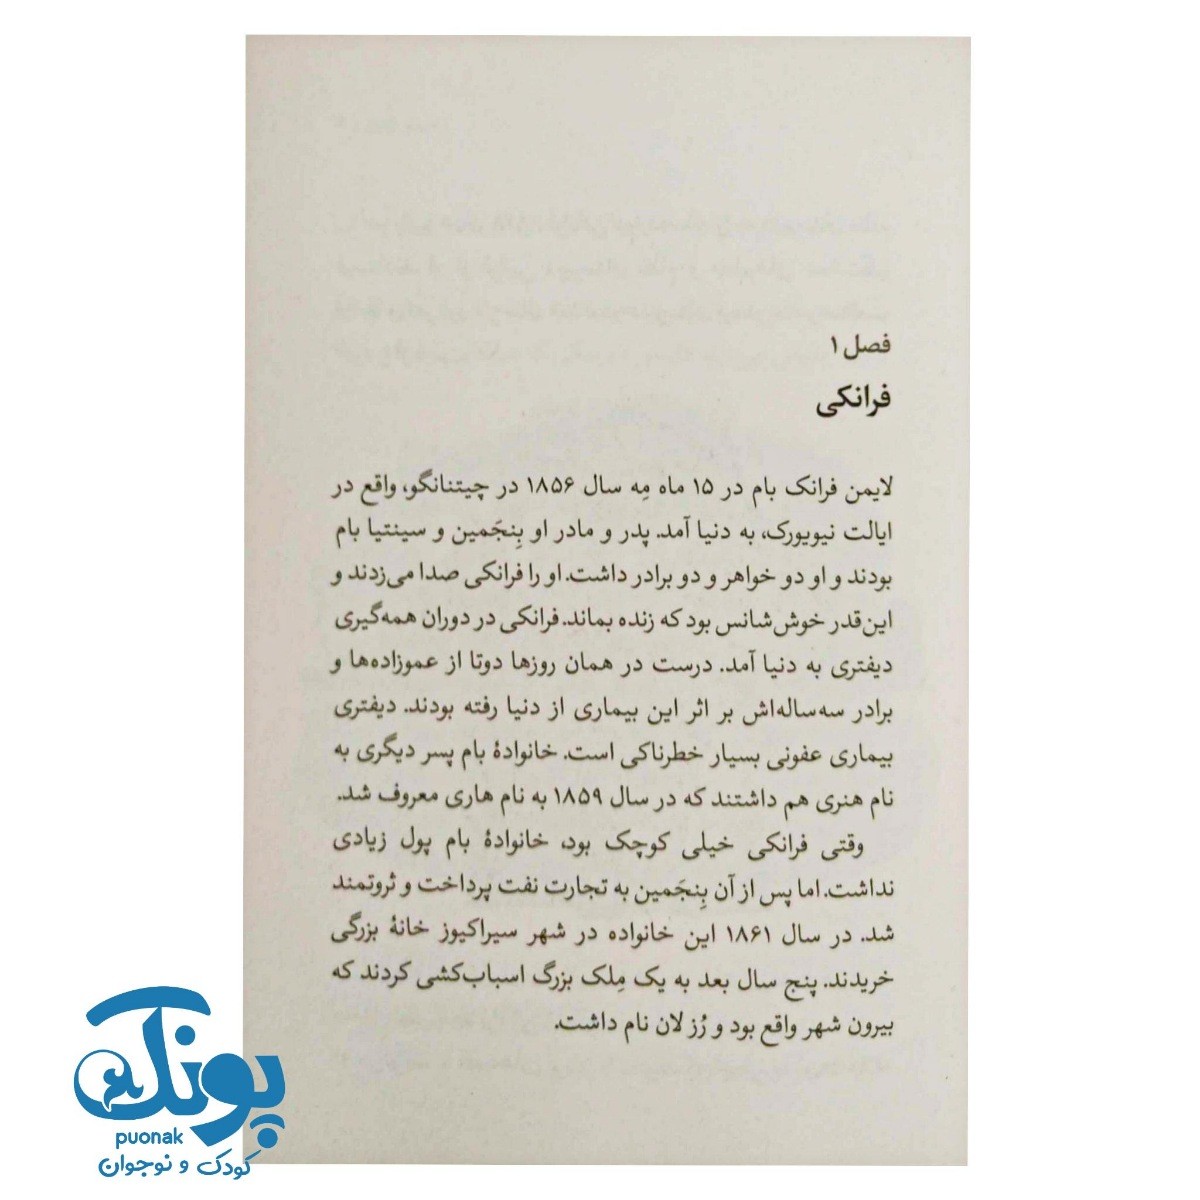 فصل ۱
فرانکی
لایمن فرانک بام در ۱۵ ماه مِه سال ۱۸۵۶ در چیتنانگو، واقع در
ایالت نیویورک، به دنیا آمد. پدر و مادر او بِنجَمین و سینتیا بام
بودند و او دو خواهر و دو برادر داشت. او را فرانکی صدا می‌زدند و
این‌قدر خوش‌شانس بود که زنده بماند. فرانکی در دوران همه‌گیری
دیفتری به دنیا آمد. درست در همان روزها دوتا از عموزاده‌ها و
برادر سه‌ساله‌اش بر اثر این بیماری از دنیا رفته بودند. دیفتری
بیماری عفونی بسیار خطرناکی است. خانوادهٔ بام پسر دیگری به
نام هنری هم داشتند که در سال ۱۸۵۹ به نام هاری معروف شد.
وقتی فرانکی خیلی کوچک بود، خانوادهٔ بام پول زیادی
نداشت. اما پس از آن بِنجَمین به تجارت نفت پرداخت و ثروتمند
شد. در سال ۱۸۶۱ این خانواده در شهر سیراکیوز خانهٔ بزرگی
خریدند. پنج سال بعد به یک مِلک بزرگ اسباب‌کشی کردند که
بیرون شهر واقع بود و رُز لان نام داشت.
پونک
puonak
کودک و نوجوان